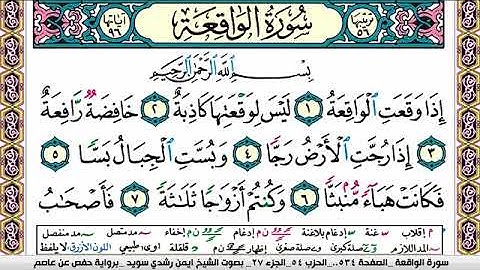 ترتيبها ٥٦ سُورَةُ الوَاقِعَة آياتها ٩٦
بِسْمِ ٱللَّهِ ٱلرَّحْمَٰنِ ٱلرَّحِيمِ
إِذَا وَقَعَتِ ٱلْوَاقِعَةُ ١ لَيْسَ لِوَقْعَتِهَا كَاذِبَةٌ ٢ خَافِضَةٌ رَّافِعَةٌ
٣ إِذَا رُجَّتِ ٱلْأَرْضُ رَجًّا ٤ وَبُسَّتِ ٱلْجِبَالُ بَسًّا ٥
فَكَانَتْ هَبَآءً مُّنۢبَثًّا ٦ وَكُنتُمْ أَزْوَٰجًا ثَلَٰثَةً ٧ فَأَصْحَٰبُ
م إقلاب غنة إدغام بلاغنة ن م إدغام ن م إخفاء مد متصل مد منفصل
المد اللازم صلة كبرى صلة صغرى إظهار ن م قلقلة طبيعي اللون الأزرق لا يلفظ
سورة الواقعة _الصفحة ٥٣٤..الحزب ٥٤_الجزء ٢٧_ بصوت الشيخ ايمن رشدي سويد _برواية حفص عن عاصم